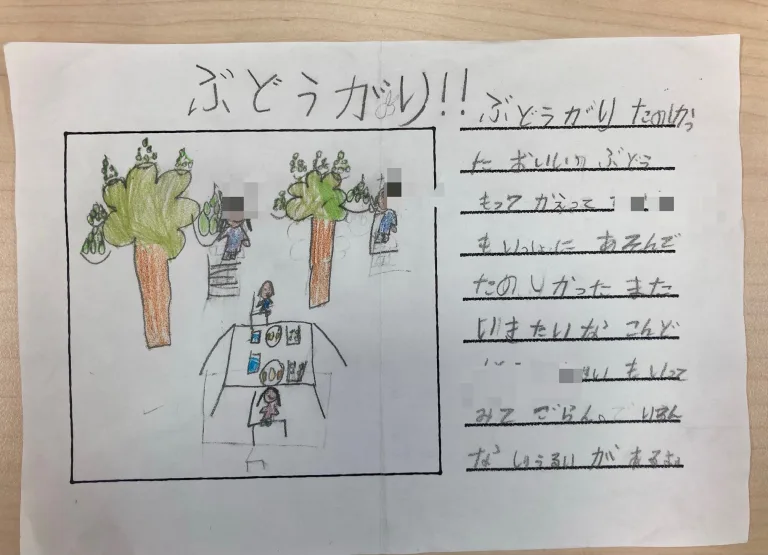 ぶどうがり!!
ぶどうがり たのしかっ
た おいしい ぶどう
もって かえって
も いっしょに あそんで
たのしかった また
いきたいな こんど
もいって
みて ごらん。 いろん
な しゅるい が あるよ